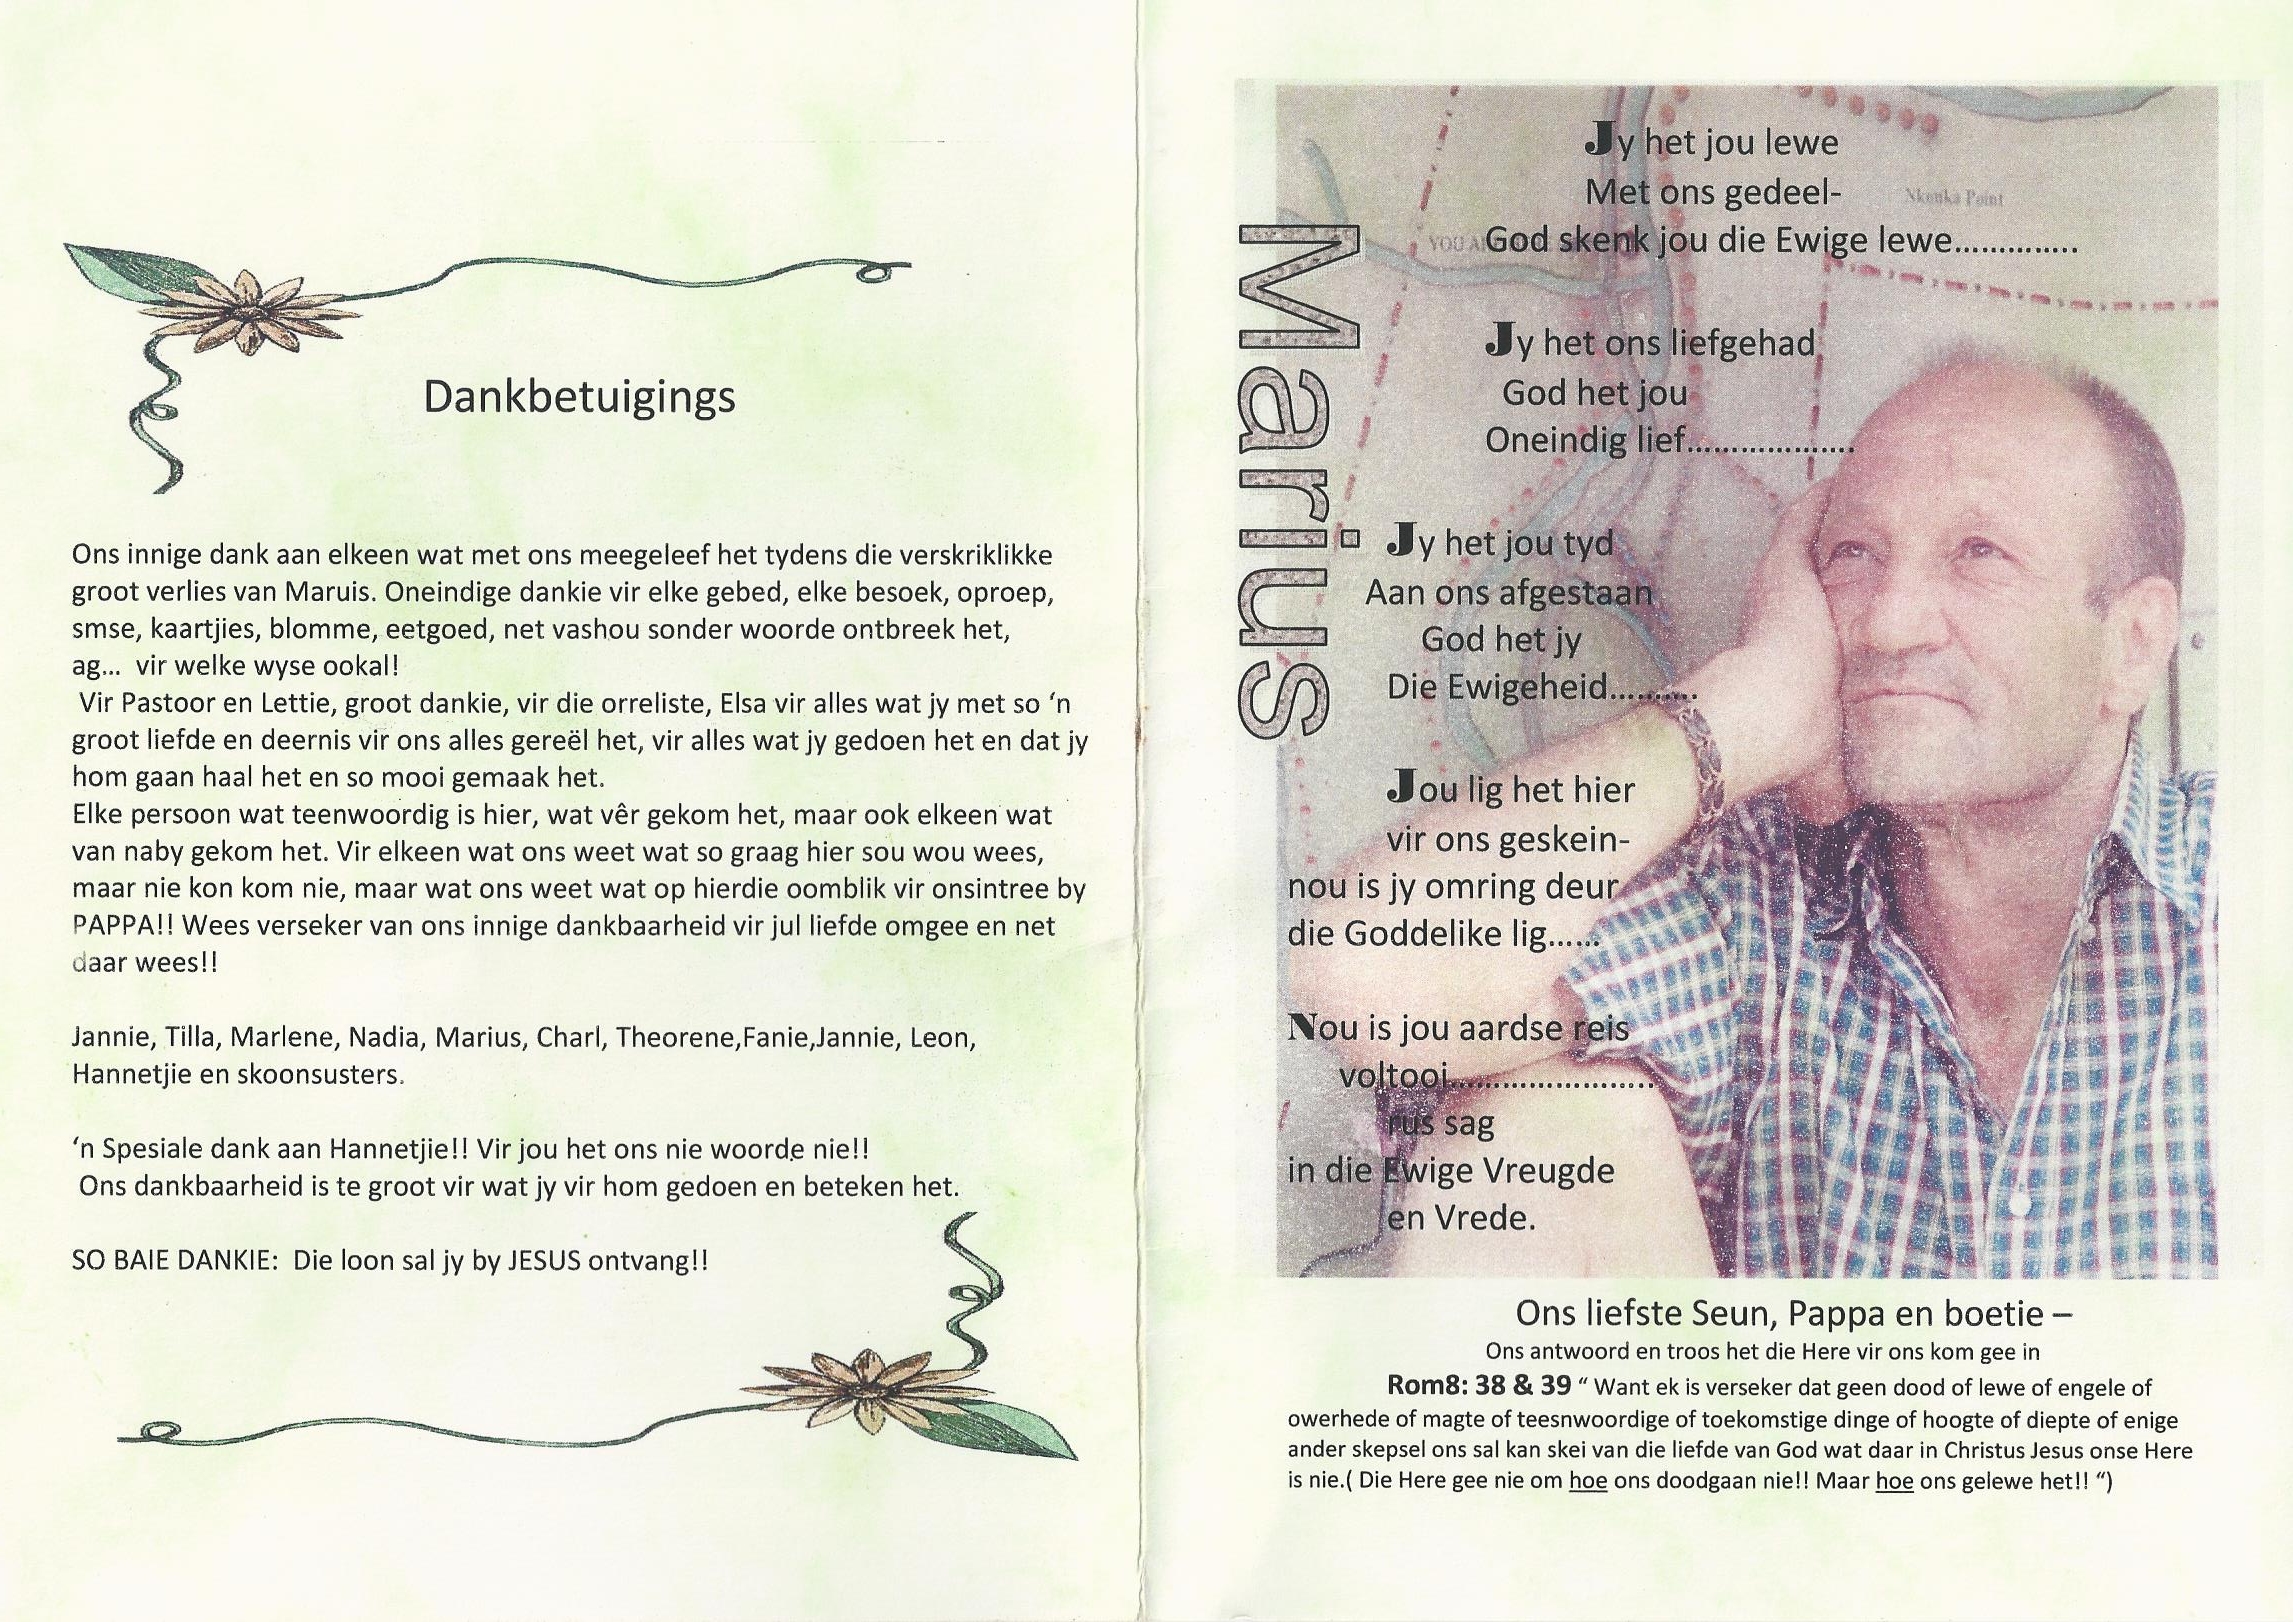 Dankbetuigings
Ons innige dank aan elkeen wat met ons meegeleef het tydens die verskriklikke
groot verlies van Maruis. Oneindige dankie vir elke gebed, elke besoek, oproep,
smse, kaartjies, blomme, eetgoed, net vashou sonder woorde ontbreek het,
ag... vir welke wyse ookal!
Vir Pastoor en Lettie, groot dankie, vir die orreliste, Elsa vir alles wat jy met so ‘n
groot liefde en deernis vir ons alles gereël het, vir alles wat jy gedoen het en dat jy
hom gaan haal het en so mooi gemaak het.
Elke persoon wat teenwoordig is hier, wat vêr gekom het, maar ook elkeen wat
van naby gekom het. Vir elkeen wat ons weet wat so graag hier sou wou wees,
maar nie kon kom nie, maar wat ons weet wat op hierdie oomblik vir onsintree by
PAPPA!! Wees verseker van ons innige dankbaarheid vir jul liefde omgee en net
daar wees!!
Jannie, Tilla, Marlene, Nadia, Marius, Charl, Theorene,Fanie,Jannie, Leon,
Hannetjie en skoonsusters.
‘n Spesiale dank aan Hannetjie!! Vir jou het ons nie woorde nie!!
Ons dankbaarheid is te groot vir wat jy vir hom gedoen en beteken het.
SO BAIE DANKIE: Die loon sal jy by JESUS ontvang!!
Marius
Jy het jou lewe
Met ons gedeel-
Nkonka Point
YOU A
God skenk jou die Ewige lewe..............
Jy het ons liefgehad
God het jou
Oneindig lief...................
Jy het jou tyd
Aan ons afgestaan
God het jy
Die Ewigeheid..........
Jou lig het hier
vir ons geskein-
nou is jy omring deur
die Goddelike lig......
Nou is jou aardse reis
voltooi.......................
rus sag
in die Ewige Vreugde
en Vrede.
Ons liefste Seun, Pappa en boetie –
Ons antwoord en troos het die Here vir ons kom gee in
Rom8: 38 & 39 “ Want ek is verseker dat geen dood of lewe of engele of
owerhede of magte of teesnwoordige of toekomstige dinge of hoogte of diepte of enige
ander skepsel ons sal kan skei van die liefde van God wat daar in Christus Jesus onse Here
is nie.( Die Here gee nie om hoe ons doodgaan nie!! Maar hoe ons gelewe het!! “)